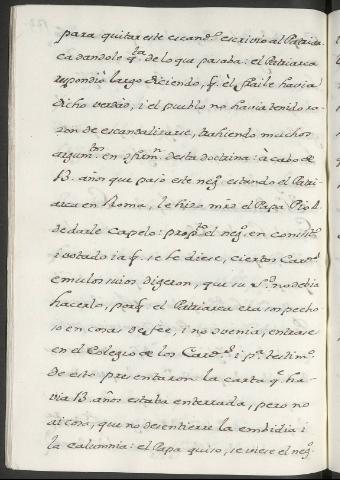 para quitar este escand.º escrivio al Patriar
ca dandole q.ta de lo que pasaba: el Patriarca
respondiò largo diciendo, q. el fraile havia
dicho verdad, i el pueblo no havia tenido ra-
zon de escandalizarse, trahiendo muchos
argum.tos en confirm.n desta doctrina: à cabo de
13. años que pasò este neg.º estando el Patri-
arca en Roma, le hizo mrd el Papa Pio 4.
de darle Capelo: prop.to el neg.º en consist.º
i votado ia q. se le diese, ciertos Card.s
emulos suios digeron, que su S.d no debia
hacerlo, porq. el Patriarca era sospecho
so en cosas de fee, i no devenia, entrase
en el Colegio de los Card.s i p.ª testim.º
de esto presentaron la carta q.e ha-
via 13. años estaba enterrada, pero no
ai cosa, que no desentierre la embidia i
la calumnia: el Papa quiso, se viese el neg.º